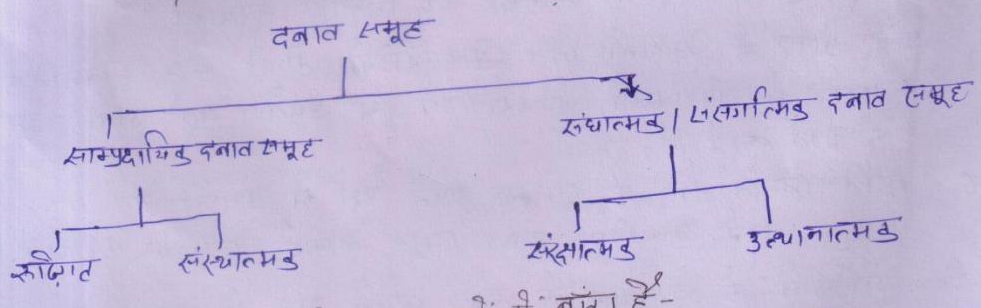 दबाव समूह
साम्प्रदायिक दबाव समूह
संघात्मक / संसर्गात्मक दबाव समूह
रूढ़िगत
संस्थात्मक
संरक्षात्मक
उत्थानात्मक
में बांटा है-